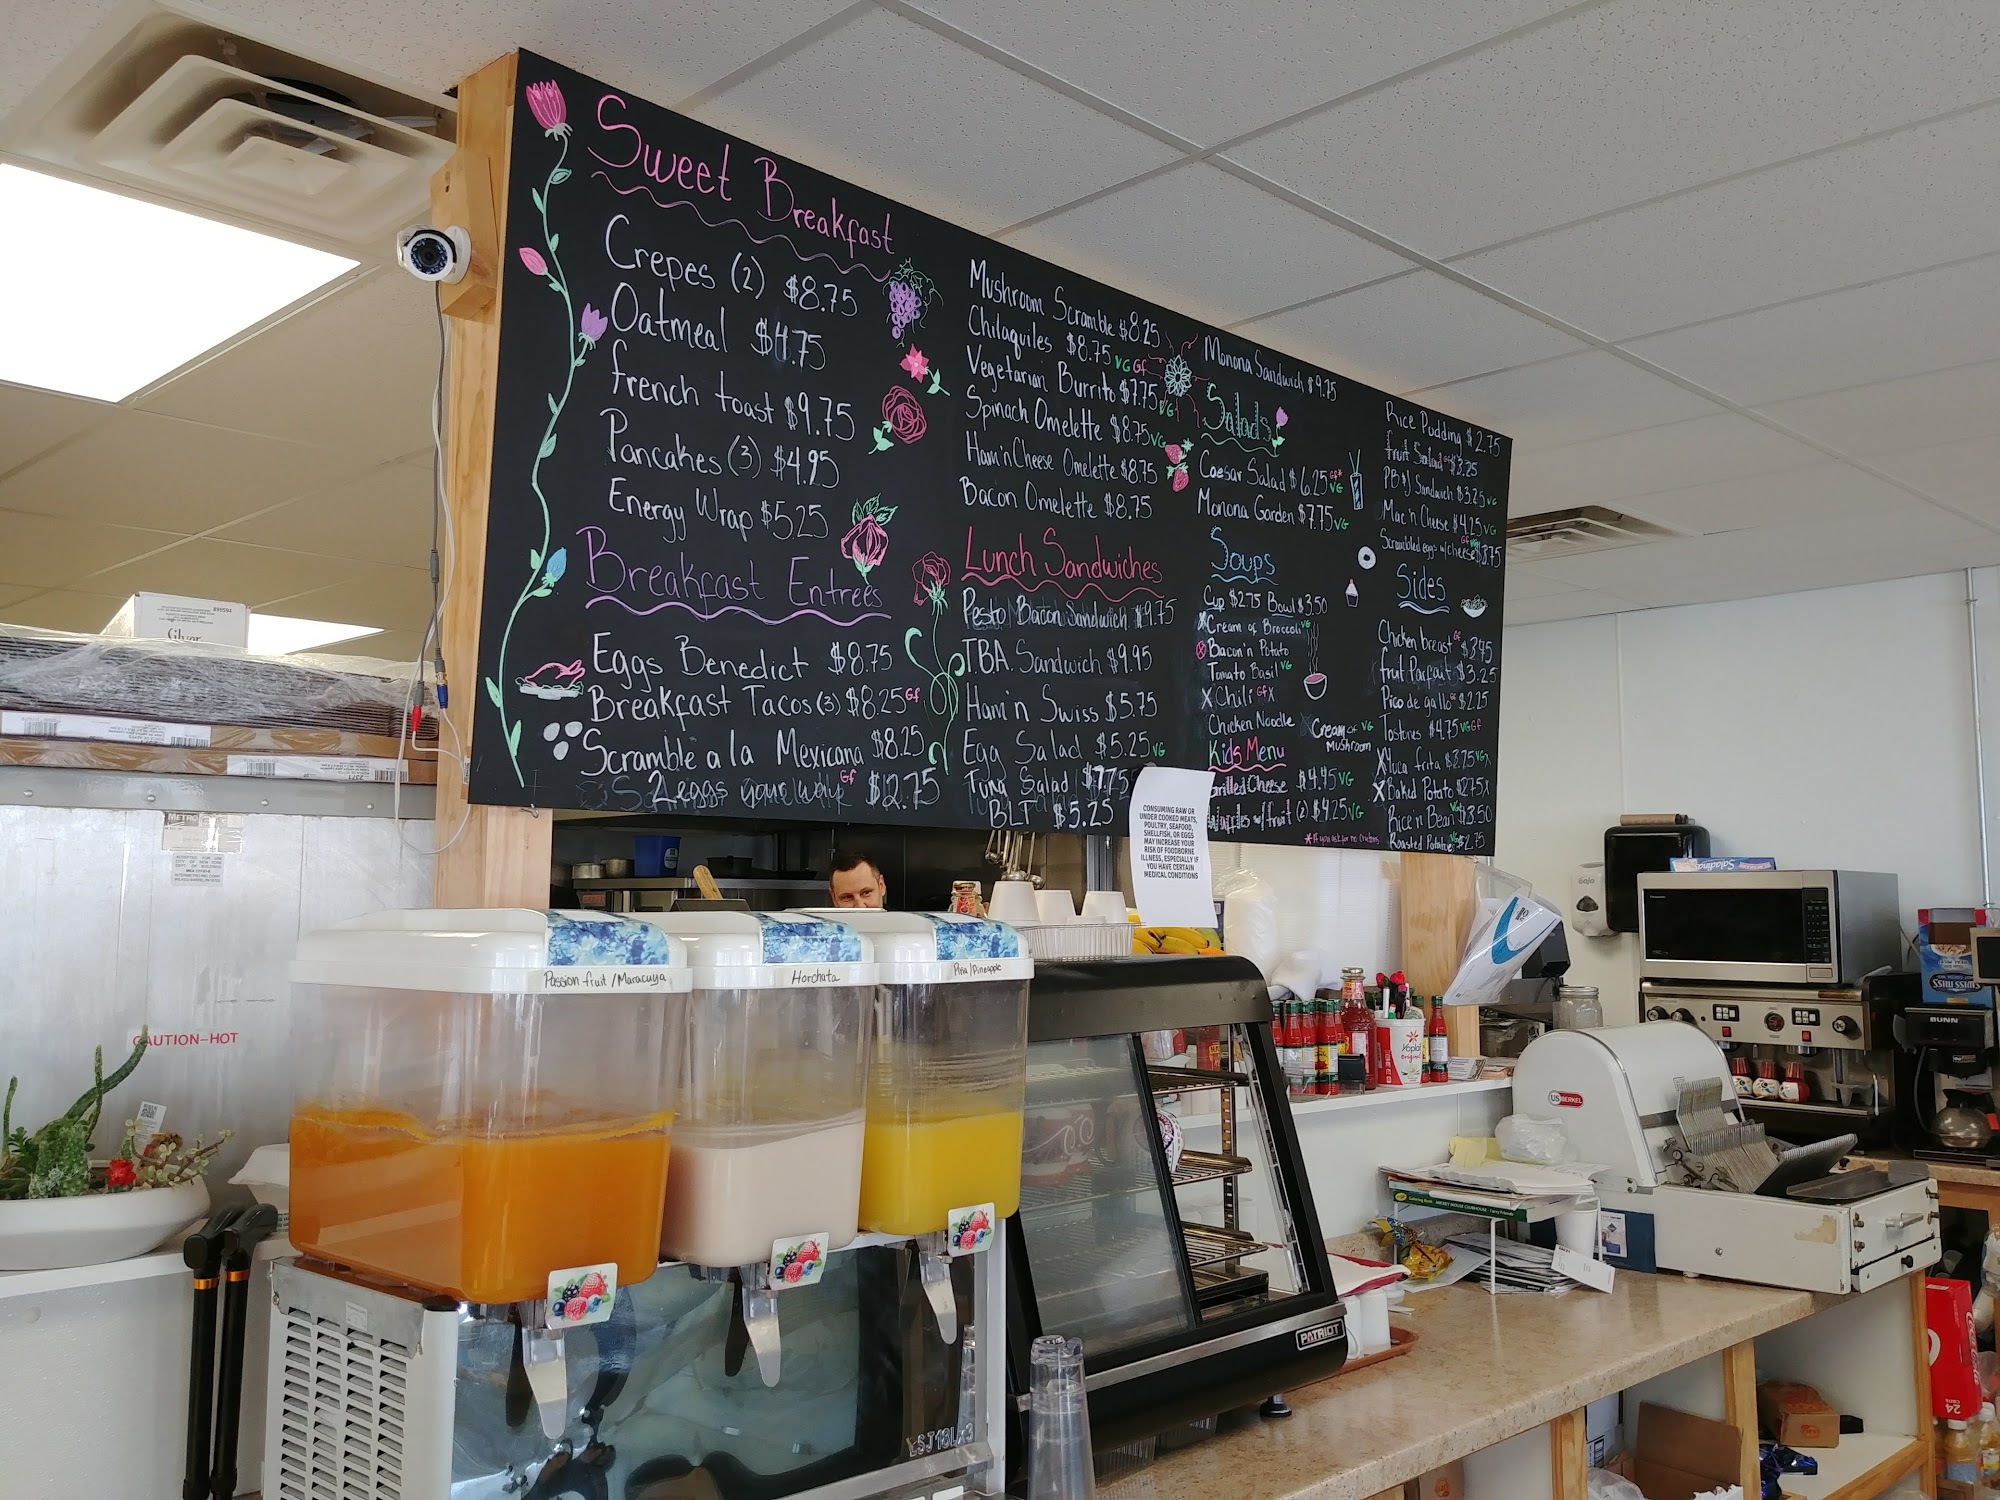 Sweet Breakfast
Crepes (2) $8.75
Oatmeal $4.75
french toast $9.75
Pancakes (3) $4.95
Energy Wrap $5.25
Breakfast Entrees
Eggs Benedict $8.75
Breakfast Tacos (3) $8.25 Gf
Scramble a la Mexicana $8.25
2 eggs your way Gf $12.75
Mushroom Scramble $8.25
Chilaquiles $8.75 VG Gf
Vegetarian Burrito $7.75 VG
Spinach Omelette $8.75 VG
Ham'n Cheese Omelette $8.75
Bacon Omelette $8.75
Lunch Sandwiches
Pesto Bacon Sandwich $9.75
TBA. Sandwich $9.95
Ham'n Swiss $5.75
Egg Salad $5.25 VG
Tuna Salad $7.75
BLT $5.25
Monona Sandwich $9.75
Salads
Caesar Salad $6.25 Gf* VG
Monona Garden $7.75 VG
Soups
Cup $2.75 Bowl $3.50
X Cream of Broccoli VG
Bacon'n Potato
Tomato Basil VG
X Chili Gf X
Chicken Noodle
Cream of VG
Mushroom
Kids Menu
Grilled Cheese $4.45 VG
w/fruit (2) $4.25 VG
*If you ask for no Croutons
Rice Pudding $2.75
fruit Salad Gf $3.25
PB&J Sandwich $3.25 VG
Mac'n Cheese $4.25 VG
Scrambled eggs w/cheese Gf $3.75
Sides
Chicken breast Gf $3.45
fruit Parfait $3.25
Pico de gallo Gf $2.25
Tostones $4.75 VG Gf
X Yuca frita $3.75 VG X
X Baked Potato $2.75 X
Rice n Bean VG $3.50
Roasted Potatoes VG $2.75
CONSUMING RAW OR
UNDER COOKED MEATS,
POULTRY, SEAFOOD,
SHELLFISH, OR EGGS
MAY INCREASE YOUR
RISK OF FOODBORNE
ILLNESS, ESPECIALLY IF
YOU HAVE CERTAIN
MEDICAL CONDITIONS
Passion fruit /Maracuya
Horchata
Piña/Pineapple
CAUTION-HOT
METRO
899594
PATRIOT
US BERKEL
Yoplait
Original
BUNN
SWISS MISS
Gojo
Panasonic
24